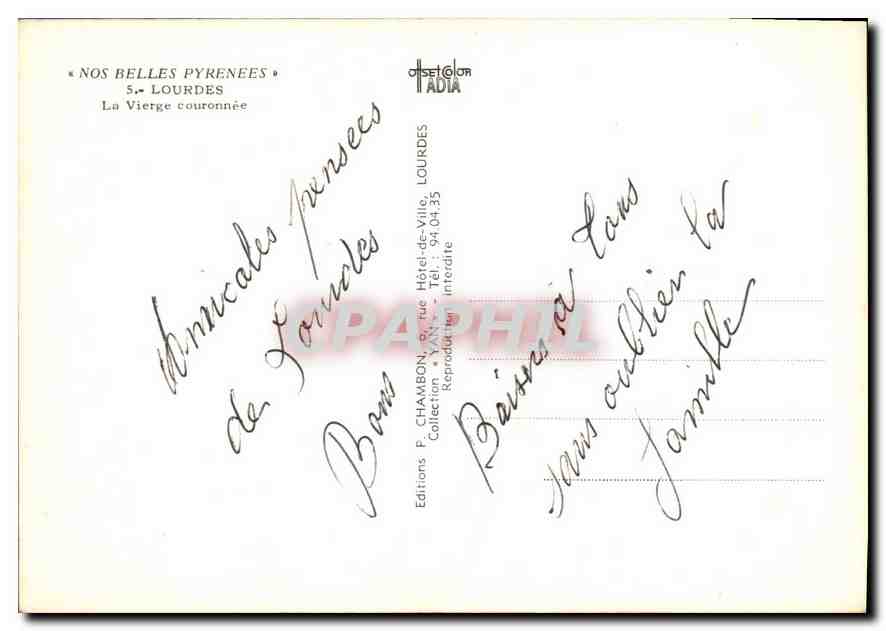 « NOS BELLES PYRENEES »
5.- LOURDES
La Vierge couronnée
OFFSETCOLOR
TADIA
Amicales pensees
de Lourdes
Bons
Editions P. CHAMBON, 6, rue Hôtel-de-Ville, LOURDES
Collection « YAN » - Tél. : 94.04.35
Reproduction interdite
Baisers à tous
sans oublier la
famille
CPAPHIL